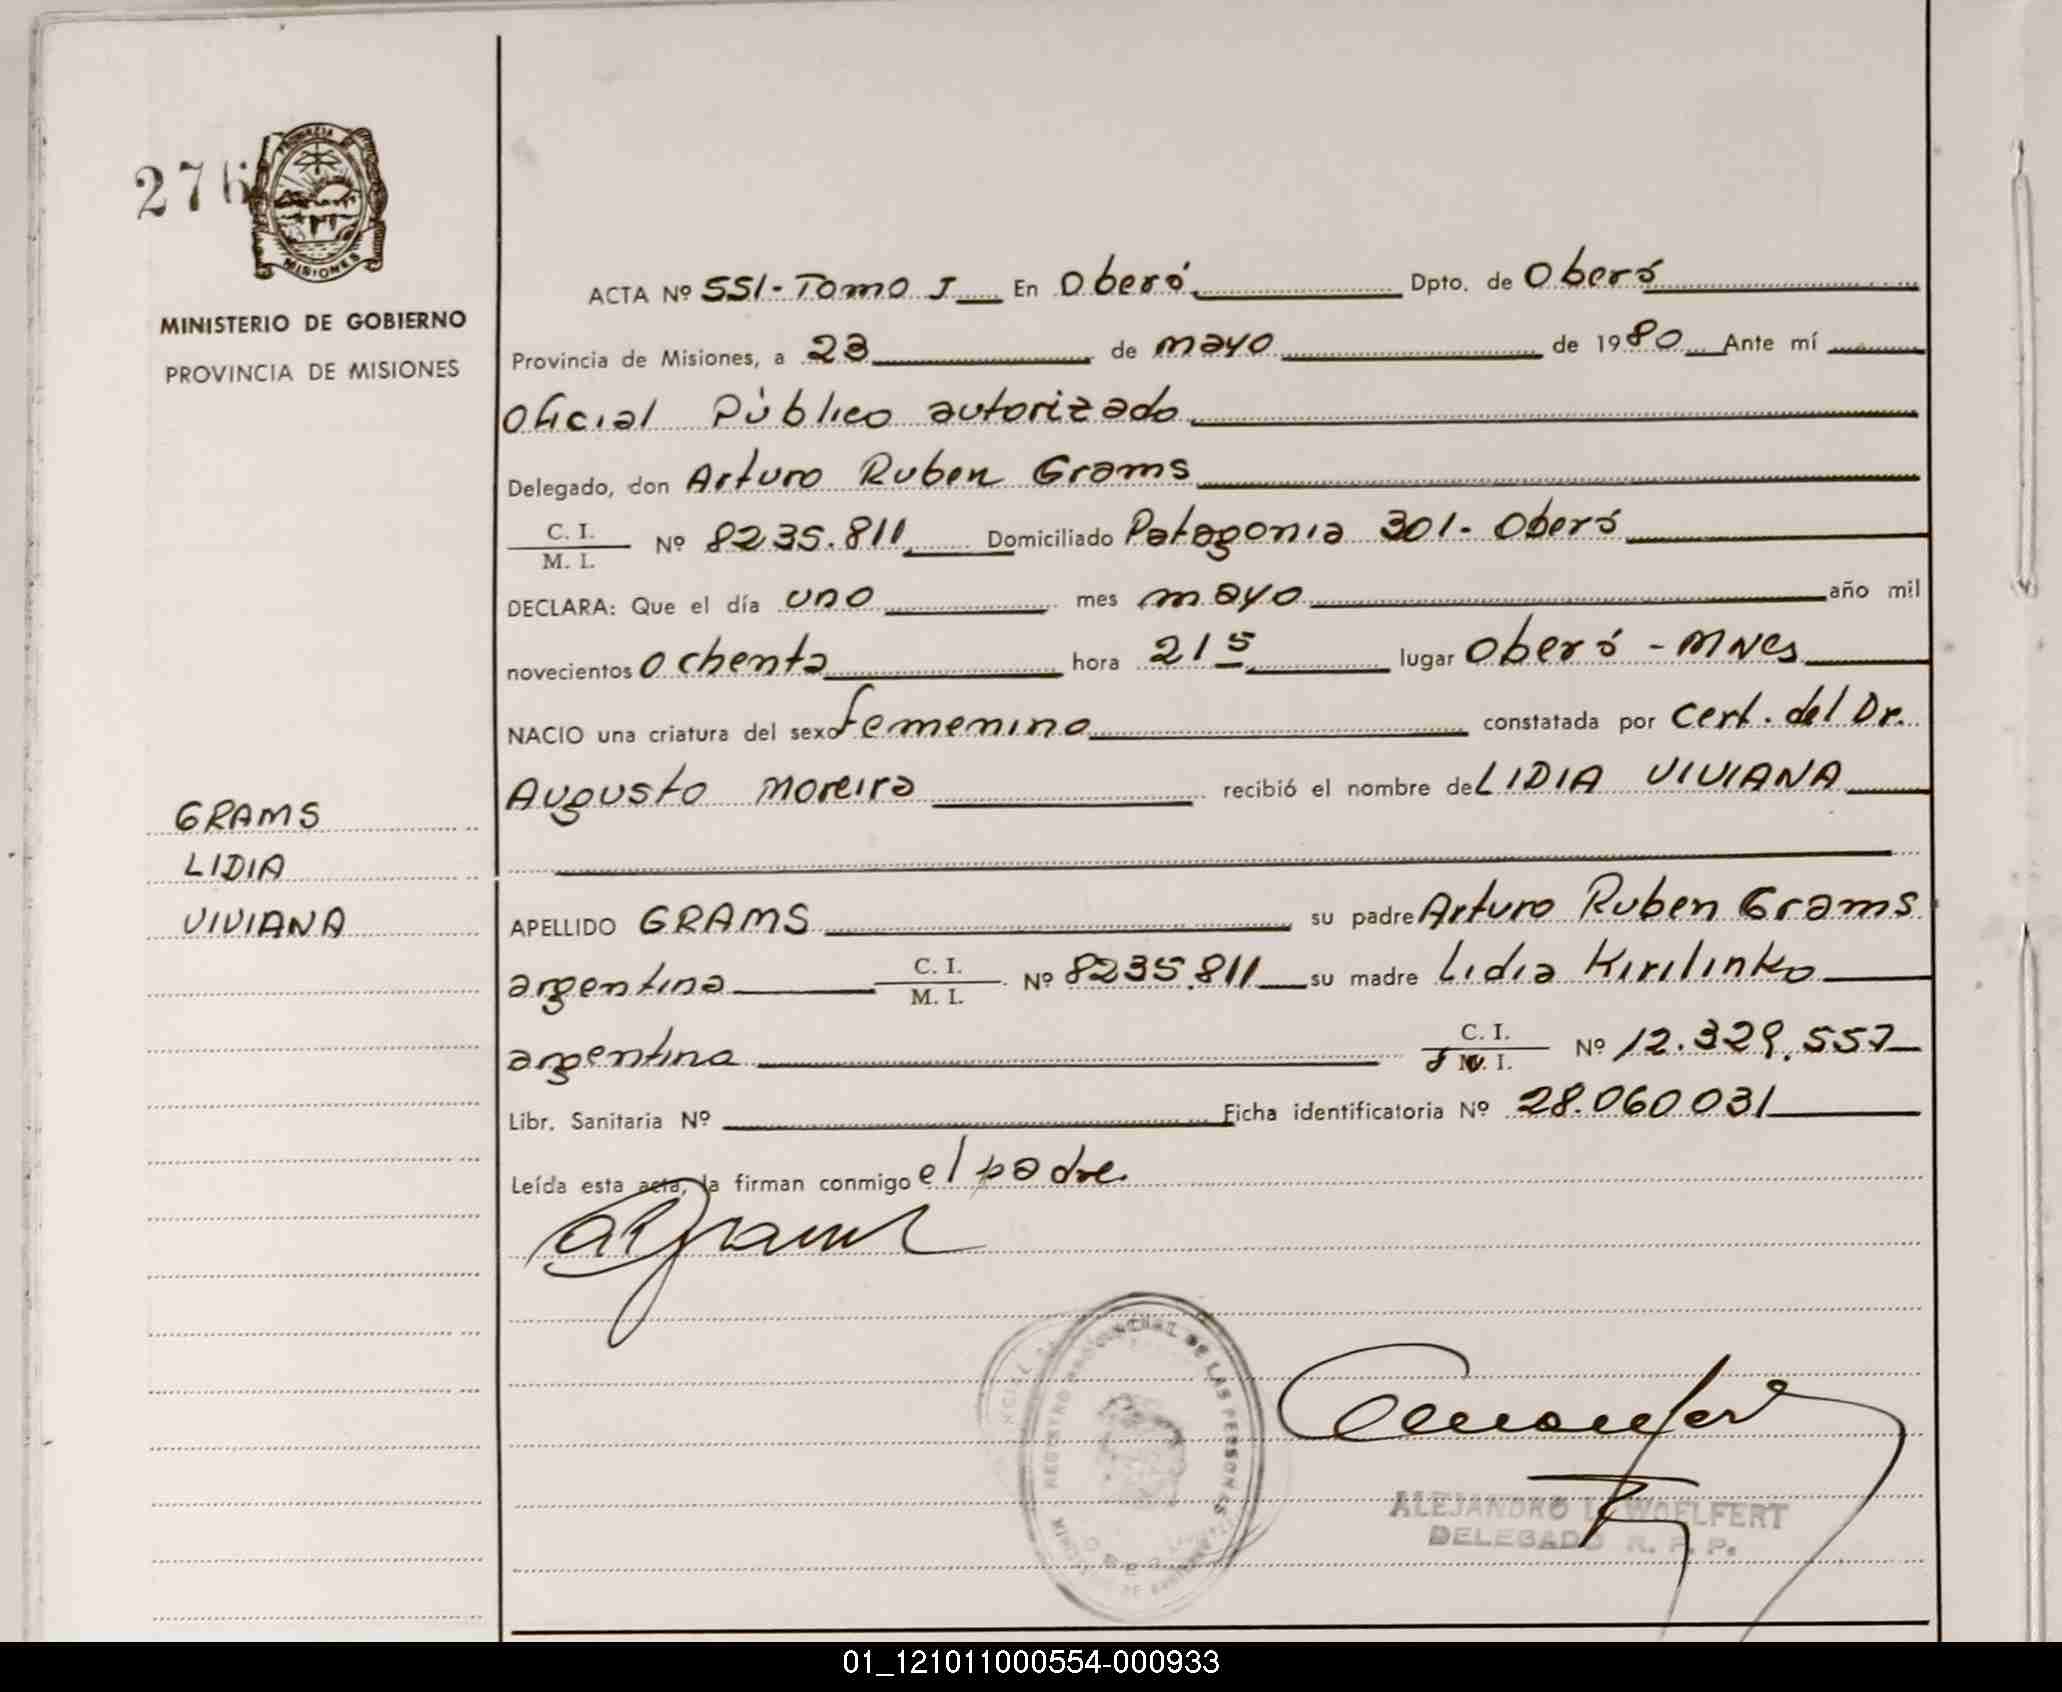 276
PROVINCIA
MISIONES
MINISTERIO DE GOBIERNO
PROVINCIA DE MISIONES
GRAMS
LIDIA
VIVIANA
ACTA Nº 551-Tomo I En Oberá Dpto. de Oberá
Provincia de Misiones, a 23 de mayo de 1980 Ante mí
Oficial Público autorizado
Delegado, don Arturo Ruben Grams
C. I.
M. I. Nº 8235.811 Domiciliado Patagonia 301- Oberá
DECLARA: Que el día uno mes mayo año mil
novecientos ochenta hora 21 5 lugar Oberá - MNes
NACIO una criatura del sexo femenino constatada por Cert. del Dr.
Augusto Moreira recibió el nombre de LIDIA VIVIANA
APELLIDO GRAMS su padre Arturo Ruben Grams
argentina C. I.
M. I. Nº 8235.811 su madre Lidia Kirilinko
argentina C. I.
M. I. Nº 12.329.557
Libr. Sanitaria Nº Ficha identificatoria Nº 28.060031
Leída esta acta, la firman conmigo el padre.
REGISTRO PROVINCIAL DE LAS PERSONAS
ALEJANDRO L. WOELFERT
DELEGADO R. P. P.
01_121011000554-000933